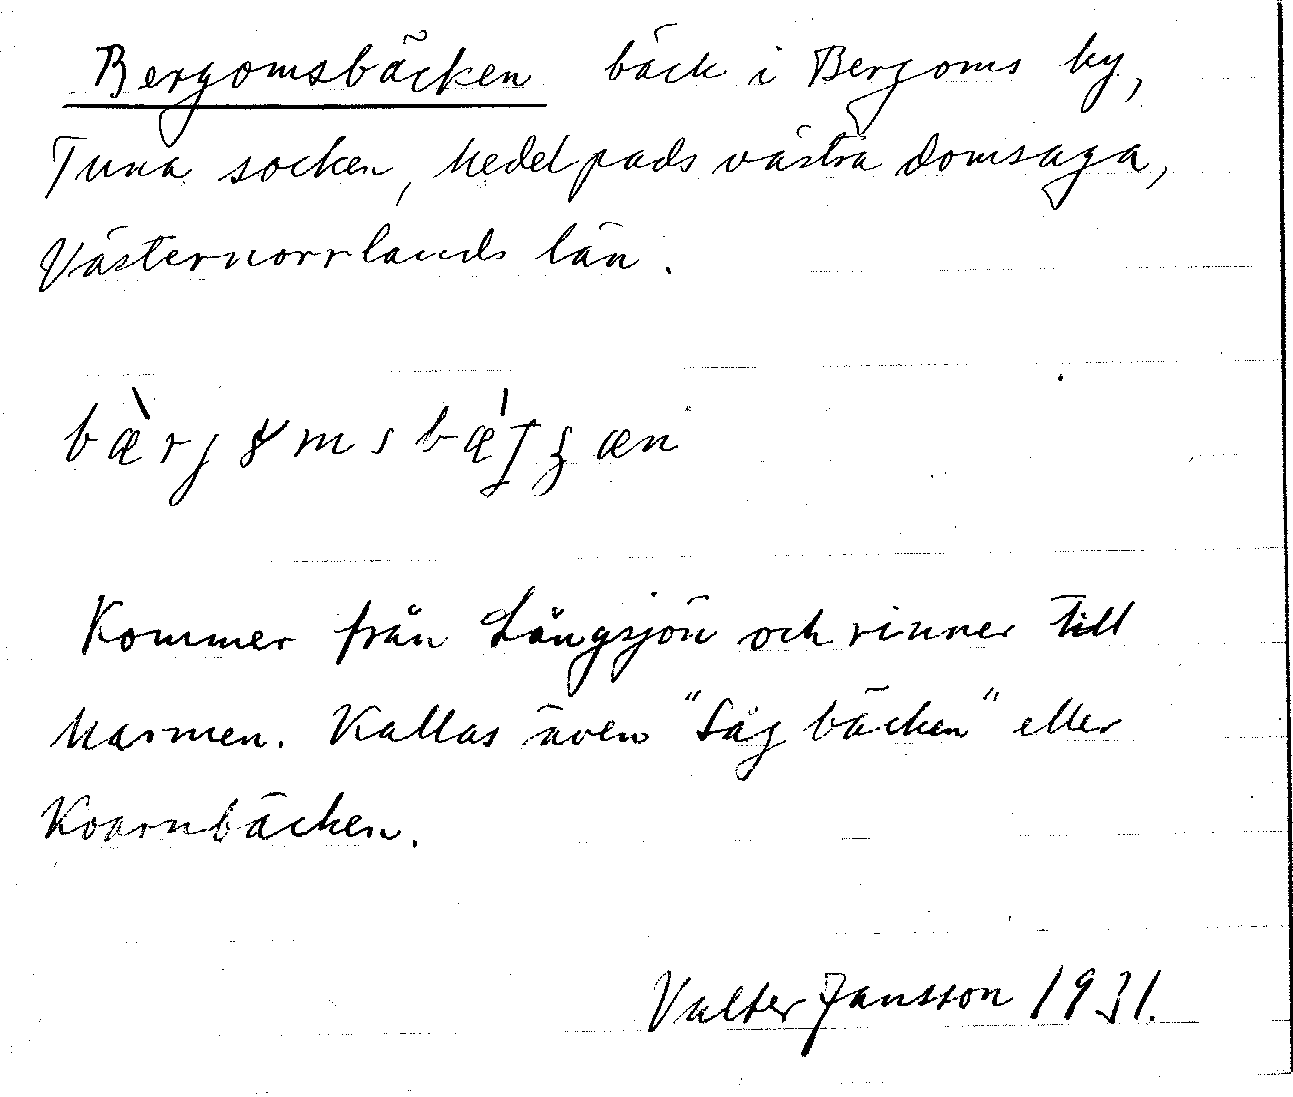 Bergomsbäcken bäck i Bergoms by,
Tuna socken, Medelpads västra domsaga,
Västernorrlands län.
Kommer från Långsjön och rinner till
Marmen. Kallas även "Sågbäcken" eller
Kvarnbäcken.
Valter Jansson 1931.